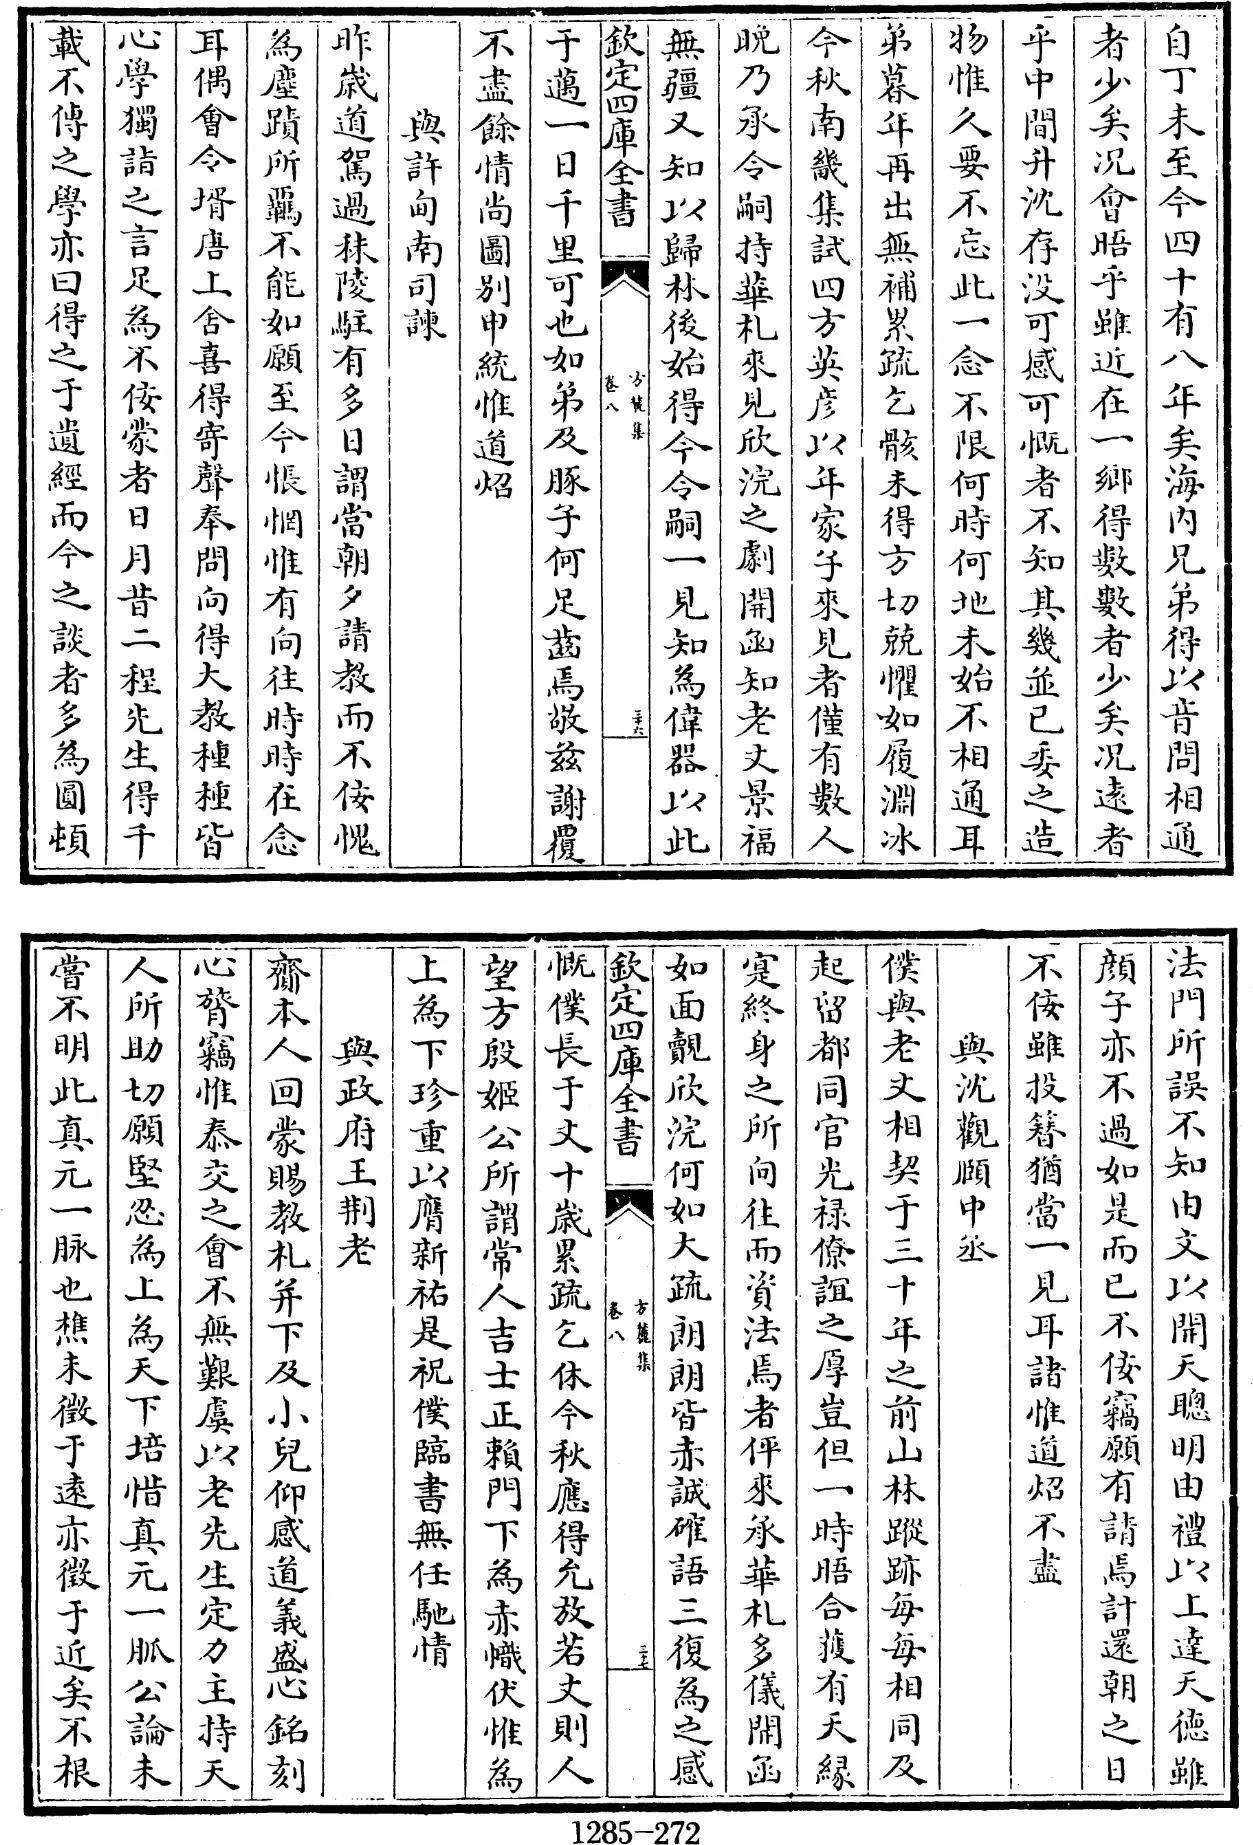 自丁未至今四十有八年矣海内兄弟得以音問相通
者少矣况會晤乎雖近在一鄉得數數者少矣况遠者
乎中間升沈存没可感可慨者不知其幾並已委之造
物惟久要不忘此一念不限何時何地未始不相通耳
弟暮年再出無補累疏乞骸未得方切兢懼如履淵冰
今秋南畿集試四方英彦以年家子來見者僅有數人
晩乃承令嗣持華札來見欣浣之劇開函知老丈景福
無疆又知以歸林後始得今令嗣一見知為偉器以此
欽定四庫全書
方麓集
卷八
三十六
于邁一日千里可也如弟及豚子何足齒焉敬兹謝覆
不盡餘情尚圖别申統惟道炤
與許甸南司諫
昨歲道駕過秣陵駐有多日謂當朝夕請教而不佞愧
為塵蹟所羈不能如願至今悵惘惟有向往時時在念
耳偶會令壻唐上舍喜得寄聲奉問向得大教種種皆
心學獨詣之言足為不佞蒙者日月昔二程先生得千
載不傳之學亦曰得之于遺經而今之談者多為圓頓
法門所誤不知由文以開天聰明由禮以上達天德雖
顔子亦不過如是而已不佞竊願有請焉計還朝之日
不佞雖投簪猶當一見耳諸惟道炤不盡
與沈觀頤中丞
僕與老丈相契于三十年之前山林蹤跡每每相同及
起留都同官光禄僚誼之厚豈但一時晤合蓋有天緣
寔終身之所向往而資法焉者伻來承華札多儀開函
如面覿欣浣何如大疏朗朗皆赤誠確語三復為之感
欽定四庫全書
方麓集
卷八
三十七
慨僕長于丈十歲累疏乞休今秋應得允放若丈則人
望方殷姬公所謂常人吉士正賴門下為赤幟伏惟為
上為下珍重以膺新祐是祝僕臨書無任馳情
與政府王荆老
齎本人回蒙賜教札并下及小兒仰感道義盛心銘刻
心膂竊惟泰交之會不無艱虞以老先生定力主持天
人所助切願堅忍為上為天下培惜真元一脈公論未
嘗不明此真元一脉也樵未徵于遠亦徵于近矣不根
1285-272